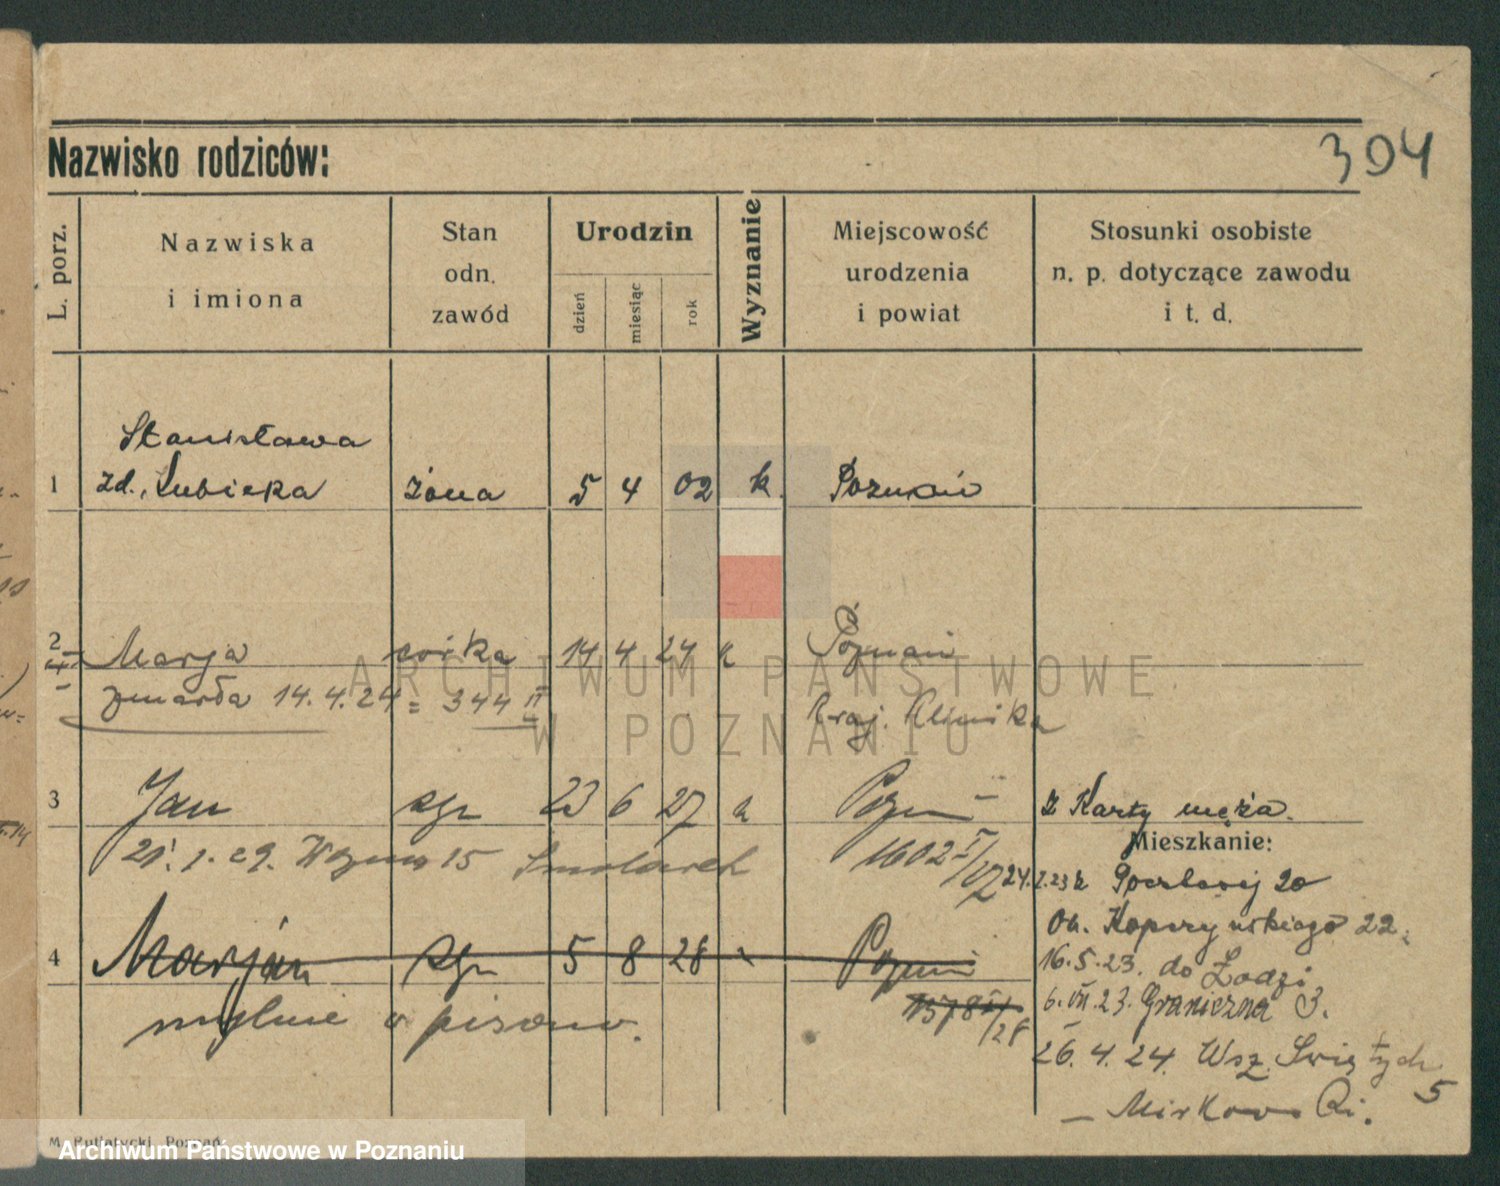 304
Nazwisko rodziców:
L. porz.
Nazwiska
i imiona
Stan
odn.
zawód
Urodzin
dzień
miesiąc
rok
Wyznanie
Miejscowość
urodzenia
i powiat
Stosunki osobiste
n. p. dotyczące zawodu
i t. d.
Stanisława
1 zd. Lubicka żona 5 4 02 k. Poznań
2 Marja córka 14 4 24 k Poznań
zmarła 14.4.24 = 344 II Kraj. Klinika
3 Jan syn 23 6 27 k Pozn z Karty męża.
21.1.29. 15 1602 I/27
Mieszkanie:
24.2.23 z Pocztowej 20
4 Marjan syn 5 8 28 Pozn
mylnie wpisano. 1578 I/28
22.
16.5.23. do Łodzi
6.VII.23. Graniczna 3.
26.4.24. Wsz. Świętych 5
M. Putiatycki, Poznań
ARCHIWUM PAŃSTWOWE
W POZNANIU
Archiwum Państwowe w Poznaniu